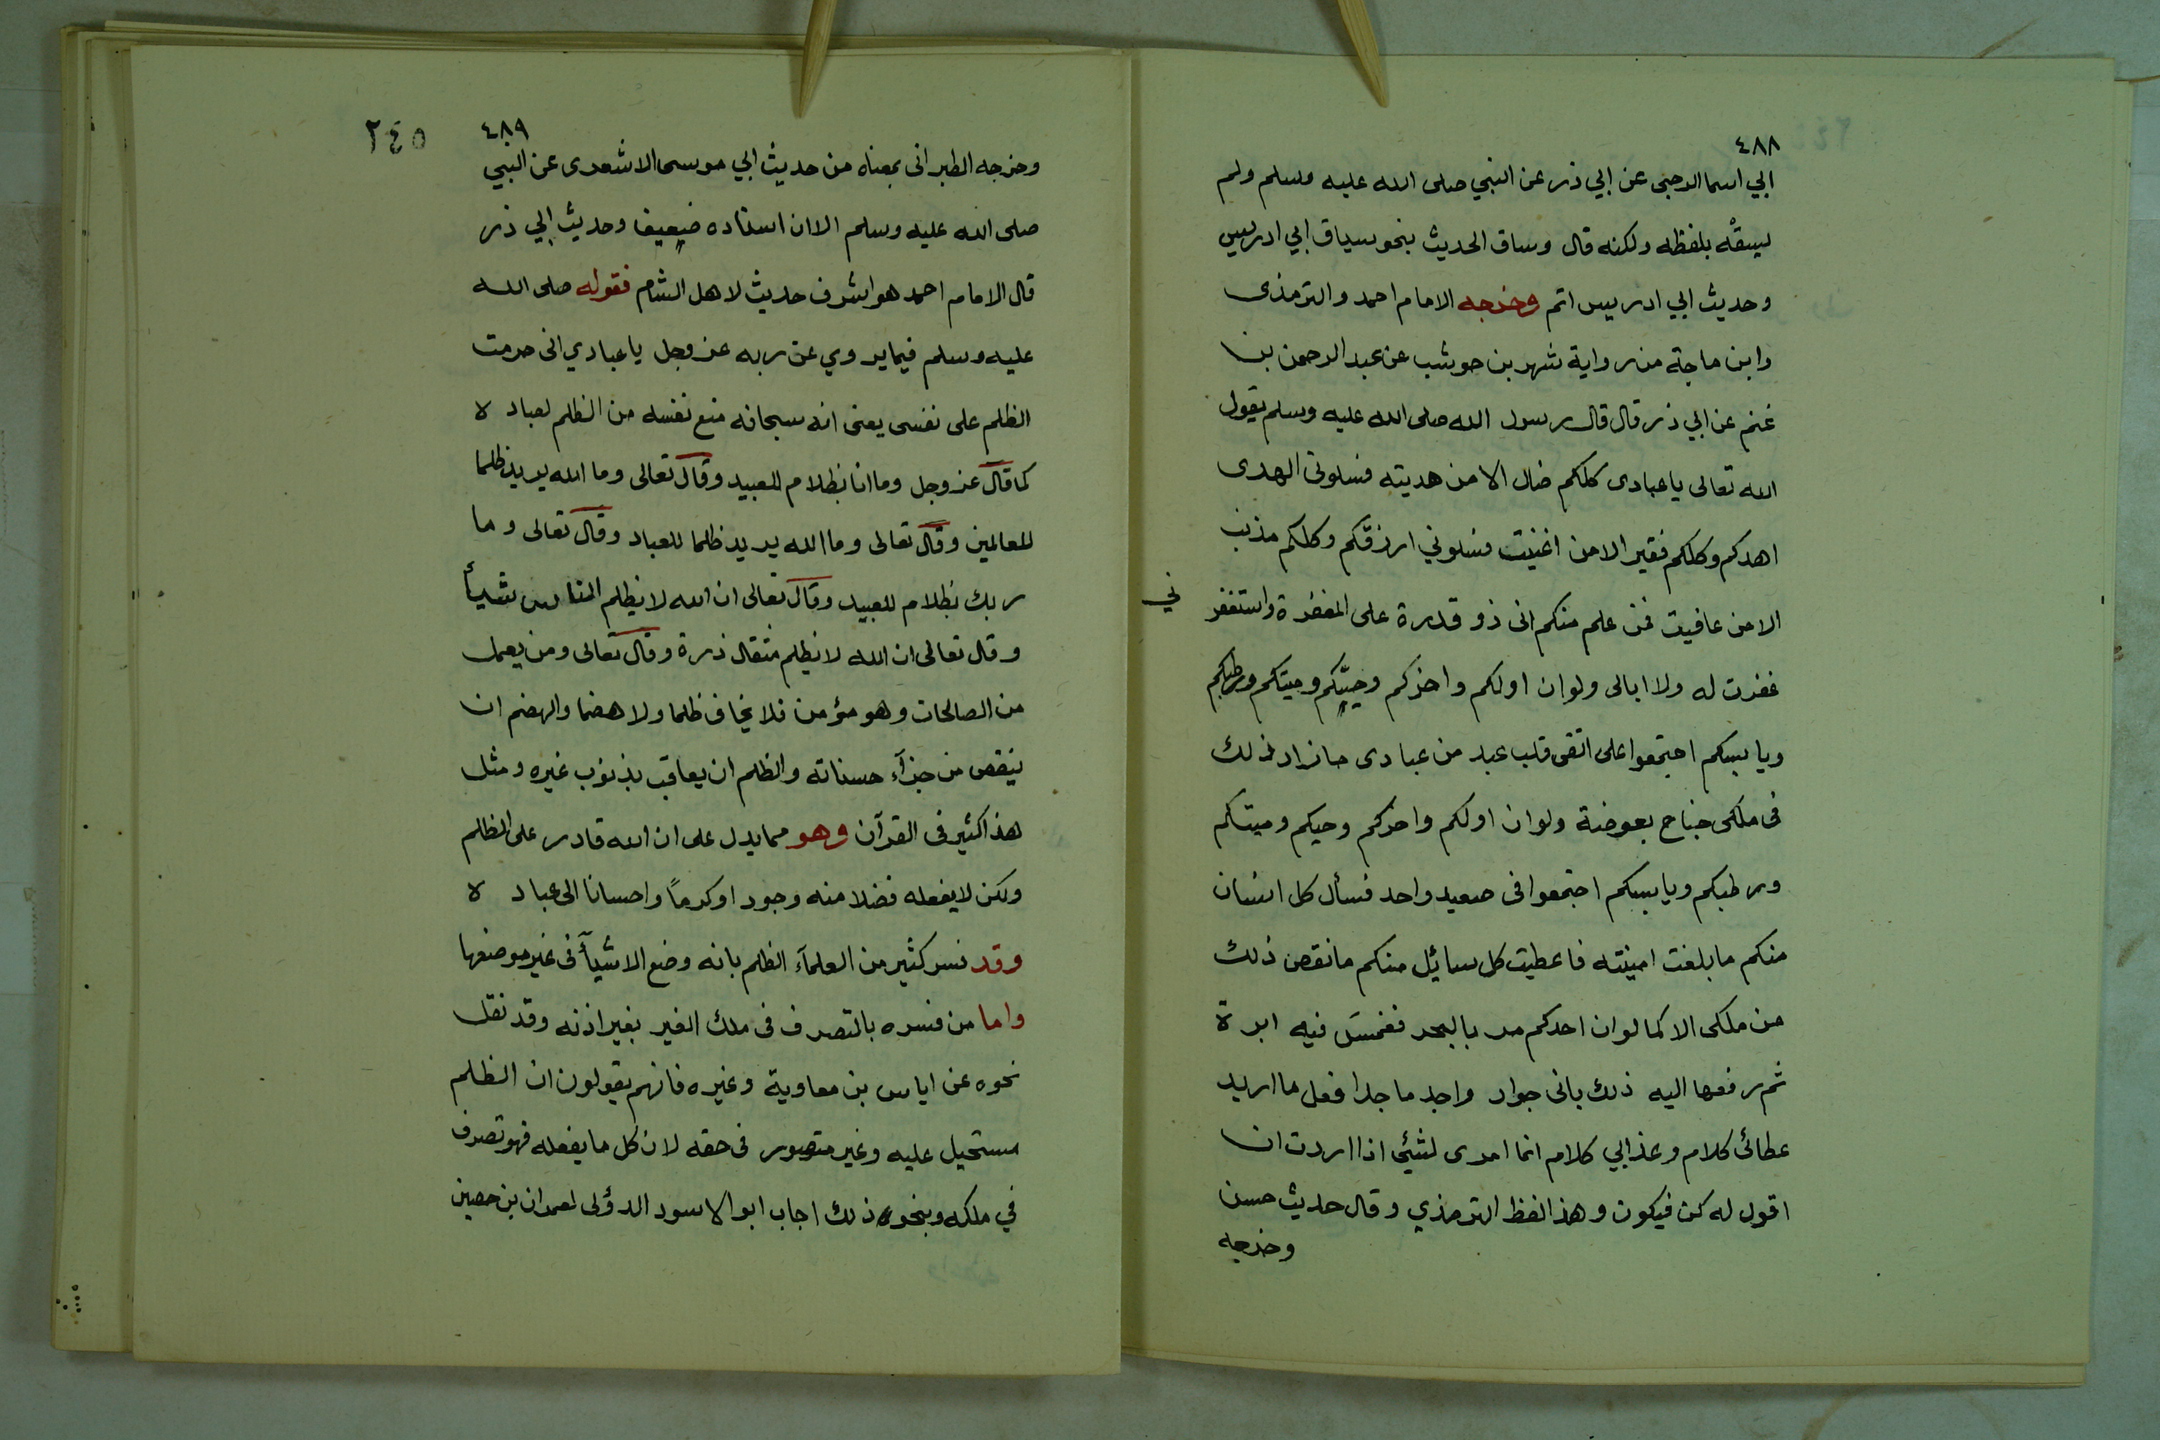 ٤٨٨
ابي اسما الرحبي عن ابي ذر عن النبي صلى الله عليه وسلم ولم
يسقه بلفظه ولكنه قال وساق الحديث بنحو سياق ابي ادريس
وحديث ابي ادريس اتم وخرجه الامام احمد والترمذى
وابن ماجة من رواية شهر بن حوشب عن عبد الرحمن بن
غنم عن ابي ذر قال قال رسول الله صلى الله عليه وسلم يقول
الله تعالى يا عبادى كلكم ضال الا من هديته فسلونى الهدى
اهدكم وكلكم فقير الا من اغنيت فسلوني ارزقكم وكلكم مذنب
الا من عافيت فمن علم منكم انى ذو قدرة على المغفرة واستغفر
ني
غفرت له ولا ابالى ولو ان اولكم واخركم وحيّكم وميتكم ورطبكم
ويابسكم اجتمعوا على اتقى قلب عبد من عبادى ما زاد ذلك
فى ملكى جناح بعوضة ولو ان اولكم واخركم وحيكم وميتكم
ورطبكم ويابسكم اجتمعوا فى صعيد واحد فسأل كل انسان
منكم ما بلغت امنيته فاعطيت كل سائل منكم ما نقص ذلك
من ملكى الا كما لو ان احدكم مر بالبحر فغمسَ فيه ابرة
ثم رفعها اليه ذلك بانى جواد واجد ماجد افعل ما اريد
عطائى كلام وعذابي كلام انما امرى لشئي اذا اردت ان
اقول له كن فيكون وهذا لفظ الترمذي وقال حديث حسن
وخرجه
٤٨٩
٢٤٥
وخرجه الطبرانى بمعناه من حديث ابي موسى الاشعرى عن النبي
صلى الله عليه وسلم الا ان اسناده ضعيف وحديث ابي ذر
قال الامام احمد هو اشرف حديث لاهل الشام فقوله صلى الله
عليه وسلم فيما يروي عن ربه عز وجل يا عبادي انى حرمت
الظلم على نفسى يعنى انه سبحانه منع نفسه من الظلم لعباده
كما قال عز وجل وما انا بظلام للعبيد وقال تعالى وما الله يريد ظلما
للعالمين وقال تعالى وما الله يريد ظلما للعباد وقال تعالى وما
ربك بظلام للعبيد وقال تعالى ان الله لا يظلم الناس شيأ
وقال تعالى ان الله لا يظلم مثقال ذرة وقال تعالى ومن يعمل
من الصالحات وهو مؤمن فلا يخاف ظلما ولا هضما والهضم ان
ينقص من جزآء حسناته والظلم ان يعاقب بذنوب غيره ومثل
هذا كثير فى القرآن وهو مما يدل على ان الله قادر على الظلم
ولكن لا يفعله فضلا منه وجودا وكرماً واحسانا الى عباده
وقد فسر كثير من العلمآء الظلم بانه وضع الاشيآ فى غير موضعها
واما من فسره بالتصرف فى ملك الغير بغير اذنه وقد نقل
نحوه عن اياس بن معاوية وغيره فانهم يقولون ان الظلم
مستحيل عليه وغير متصور فى حقه لان كل ما يفعله فهو تصرف
في ملكه وبنحوه ذلك اجاب ابو الاسود الدؤلى لعمران بن حصين